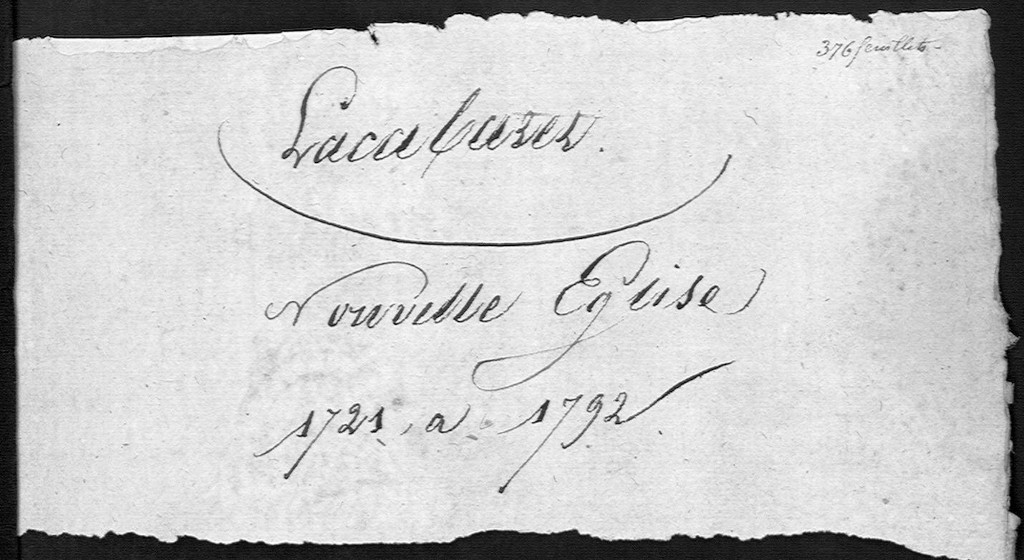 376 feuillets
Lacabarer.
Nouvelle Eglise
1721. a 1792